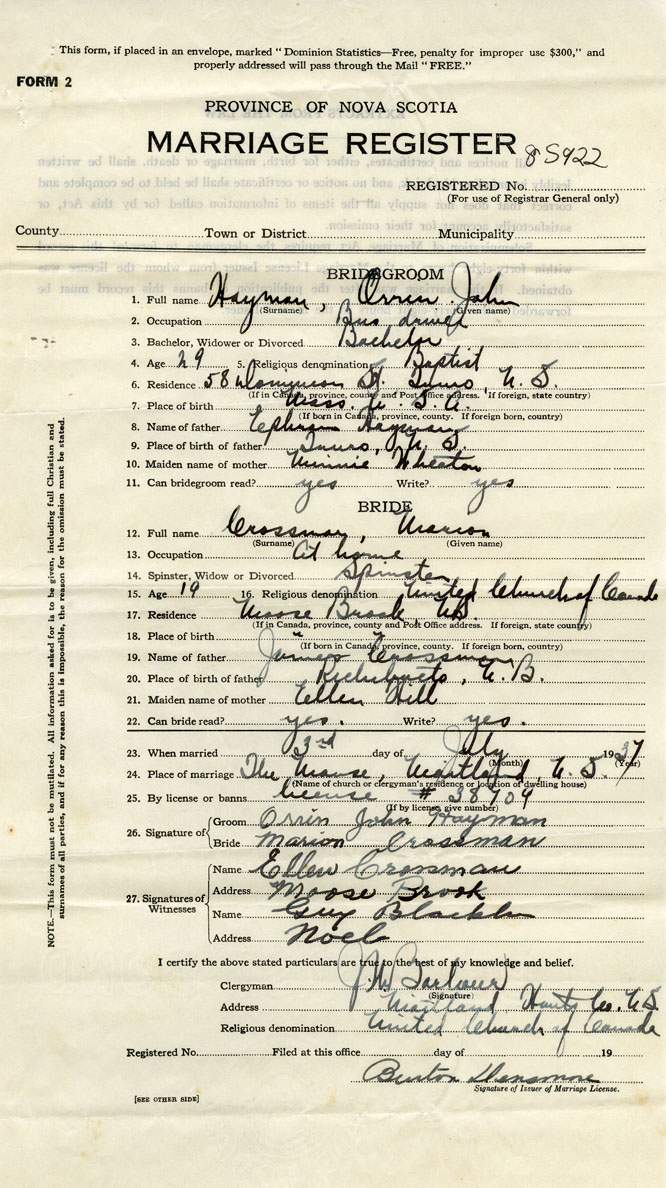 This form, if placed in an envelope, marked "Dominion Statistics—Free, penalty for improper use $300," and
properly addressed will pass through the Mail "FREE."
FORM 2
PROVINCE OF NOVA SCOTIA
MARRIAGE REGISTER 85922
REGISTERED No.
(For use of Registrar General only)
County Town or District Municipality
BRIDEGROOM
1. Full name Hayman, Orrin John
(Surname) (Given name)
2. Occupation Bus driver
3. Bachelor, Widower or Divorced Bachelor
4. Age 29 5. Religious denomination Baptist
6. Residence 58 Dominion St. Truro, N. S.
(If in Canada, province, county and Post Office address. If foreign, state country)
7. Place of birth Mass. U. S. A.
(If born in Canada, province, county. If foreign born, country)
8. Name of father Ephram Hayman
9. Place of birth of father Truro, N. S.
10. Maiden name of mother Minnie Wheaton
11. Can bridegroom read? yes Write? yes
BRIDE
12. Full name Crossman, Marion
(Surname) (Given name)
13. Occupation At home
14. Spinster, Widow or Divorced Spinster
15. Age 19 16. Religious denomination United Church of Canada
17. Residence Moose Brook, NS
(If in Canada, province, county and Post Office address. If foreign, state country)
18. Place of birth " "
(If born in Canada, province, county. If foreign born, country)
19. Name of father James Crossman
20. Place of birth of father Richibucto, N. B.
21. Maiden name of mother Ellen Hill
22. Can bride read? yes. Write? yes.
23. When married 3rd day of July 1937
(Month) (Year)
24. Place of marriage The Manse, Maitland, N. S.
(Name of church or clergyman's residence or location of dwelling house)
25. By license or banns license # 38709
(If by license, give number)
26. Signature of Groom Orrin John Hayman
Bride Marion Crossman
27. Signatures of Witnesses
Name Ellen Crossman
Address Moose Brook
Name Guy
Address Noel
I certify the above stated particulars are true to the best of my knowledge and belief.
Clergyman J. W. Barbour
(Signature)
Address Maitland Hants Co. N.S.
Religious denomination United Church of Canada
Registered No. Filed at this office day of 19
Burton Densmore
Signature of Issuer of Marriage License.
[SEE OTHER SIDE]
NOTE.—This form must not be mutilated. All information asked for is to be given, including full Christian and
surnames of all parties, and if for any reason this is impossible, the reason for the omission must be stated.